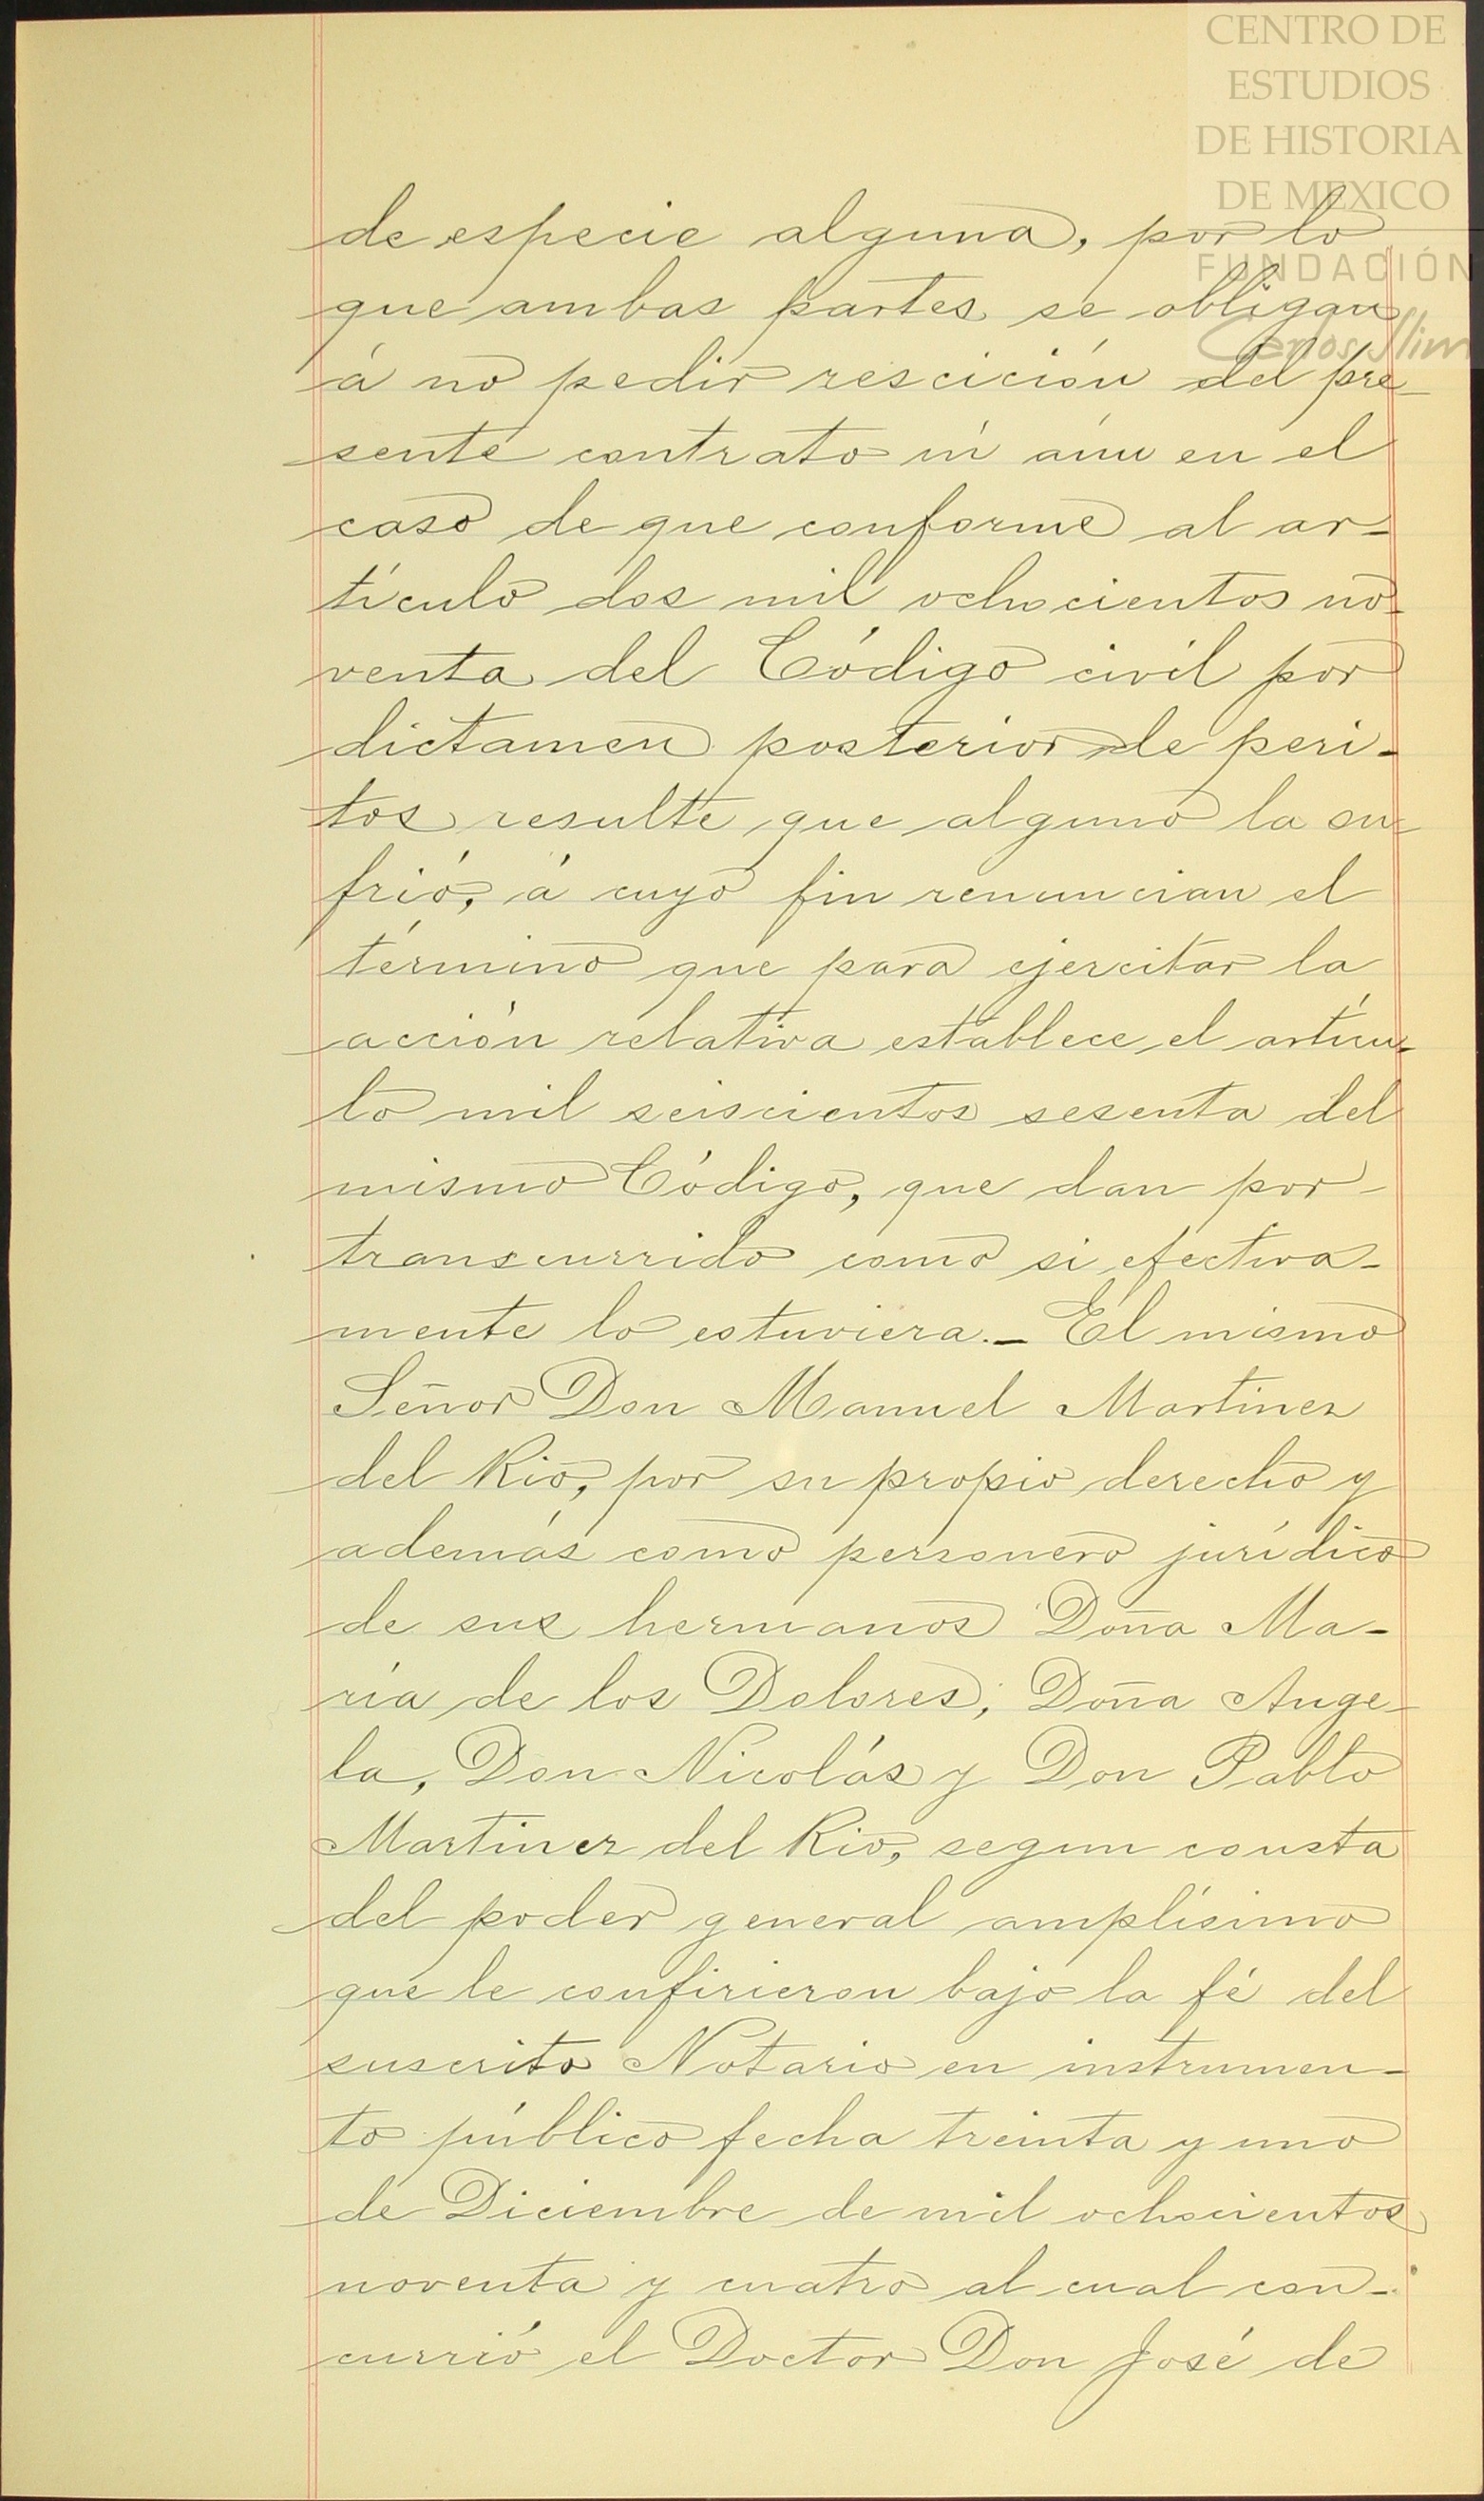 CENTRO DE
ESTUDIOS
DE HISTORIA
DE MEXICO
FUNDACIÓN
Carlos Slim
de especie alguna, por lo
que ambas partes se obligan
á no pedir rescición del pre-
sente contrato ni aún en el
caso de que conforme al ar-
tículo dos mil ochocientos no-
venta del Código civil por
dictamen posterior de peri-
tos resulte que alguno la su-
frió, á cuyo fin renuncian el
término que para ejercitar la
acción relativa establece el artícu-
lo mil seiscientos sesenta del
mismo Código, que dan por
transcurrido como si efectiva-
mente lo estuviera.- El mismo
Señor Don Manuel Martinez
del Rio, por su propio derecho y
además como personero jurídico
de sus hermanos Doña Ma-
ría de los Dolores, Doña Ange-
la, Don Nicolás y Don Pablo
Martinez del Rio, segun consta
del poder general amplísimo
que le confirieron bajo la fé del
suscrito Notario en instrumen-
to público fecha treinta y uno
de Diciembre de mil ochocientos
noventa y cuatro al cual con-
currió el Doctor Don José de